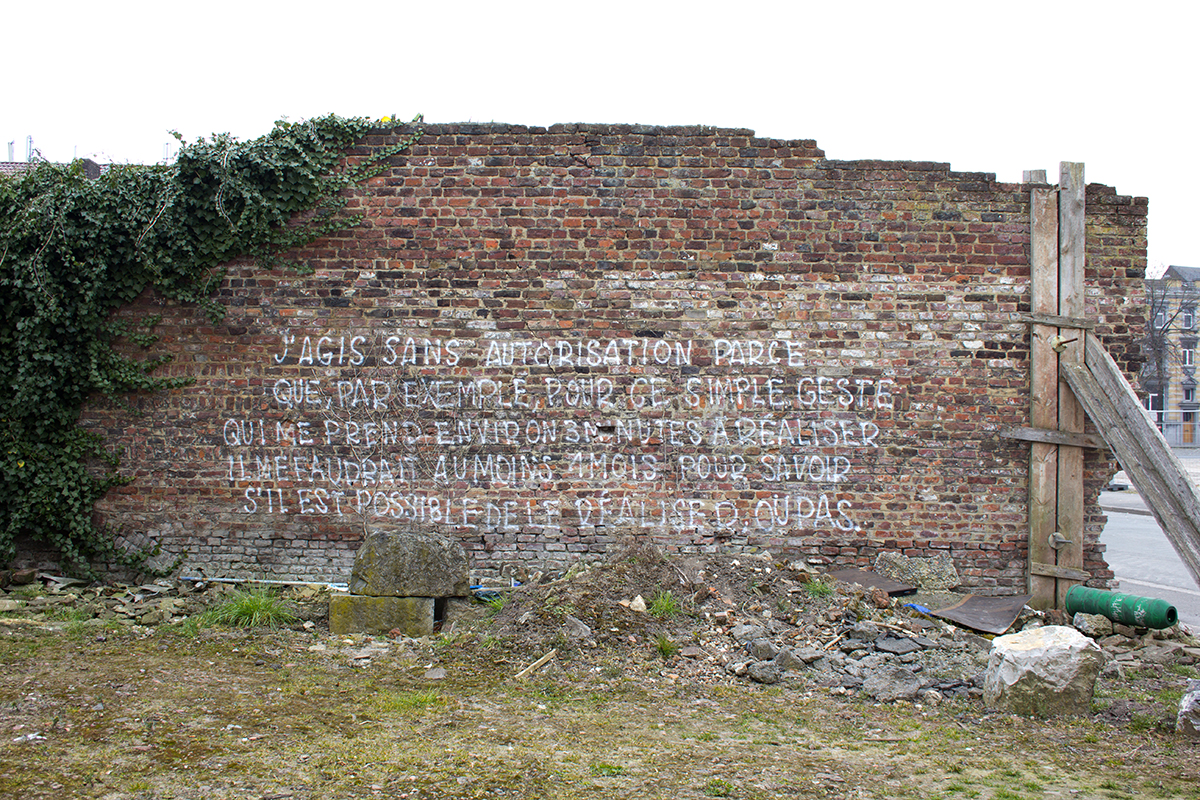 J'AGIS SANS AUTORISATION PARCE
QUE, PAR EXEMPLE, POUR CE SIMPLE GESTE
QUI ME PREND ENVIRON 3 MINUTES A RÉALISER
IL ME FAUDRAIT AU MOINS 1 MOIS POUR SAVOIR
S'IL EST POSSIBLE DE LE RÉALISER OU PAS.